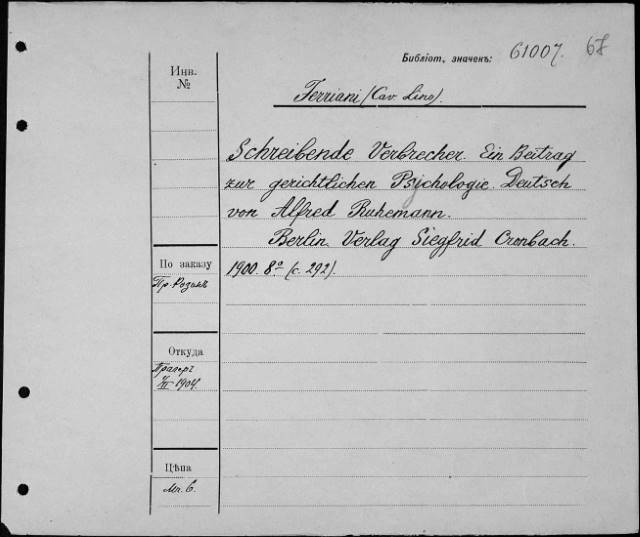 Библіот. значекъ: 61007. 67
Инв.
№
Ferriani (Cav. Lino).
Schreibende Verbrecher. Ein Beitrag
zur gerichtlichen Psychologie. Deutsch
von Alfred Ruhemann.
Berlin. Verlag Siegfrid Cronbach.
1900. 8º (с. 292).
По заказу
Пр.
Откуда
1904.
Цѣна
Mr. 6.